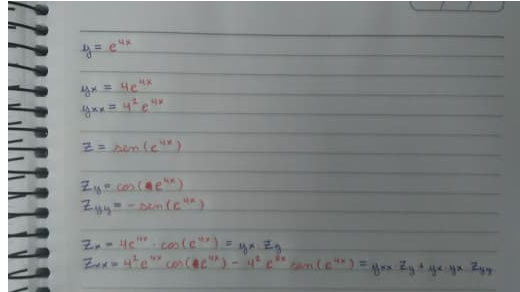 y = e^{4x}
yx = 4e^{4x}
yxx = 4²e^{4x}
Z = sen(e^{4x})
Zy = cos(e^{4x})
Zyy = -sen(e^{4x})
Zx = 4e^{4x} · cos(e^{4x}) = yx · Zy
Zxx = 4²e^{4x} cos(e^{4x}) - 4²e^{8x} sen(e^{4x}) = yxx · Zy + yx · yx · Zyy